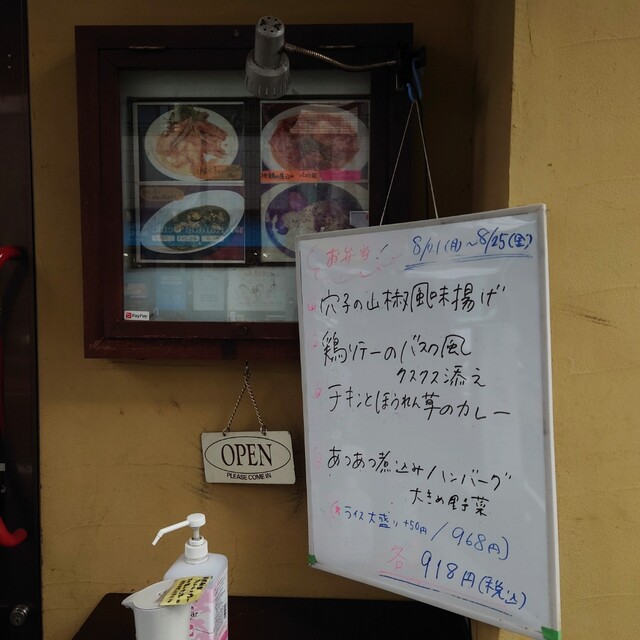 お弁当!
8/21(月)~8/25(金)
穴子の山椒風味揚げ
鶏ソテーのバスク風
クスクス添え
チキンとほうれん草のカレー
あつあつ煮込みハンバーグ
大きめ野菜
ライス大盛り+50円/968円)
各918円(税込)
OPEN
PLEASE COME IN
PayPay